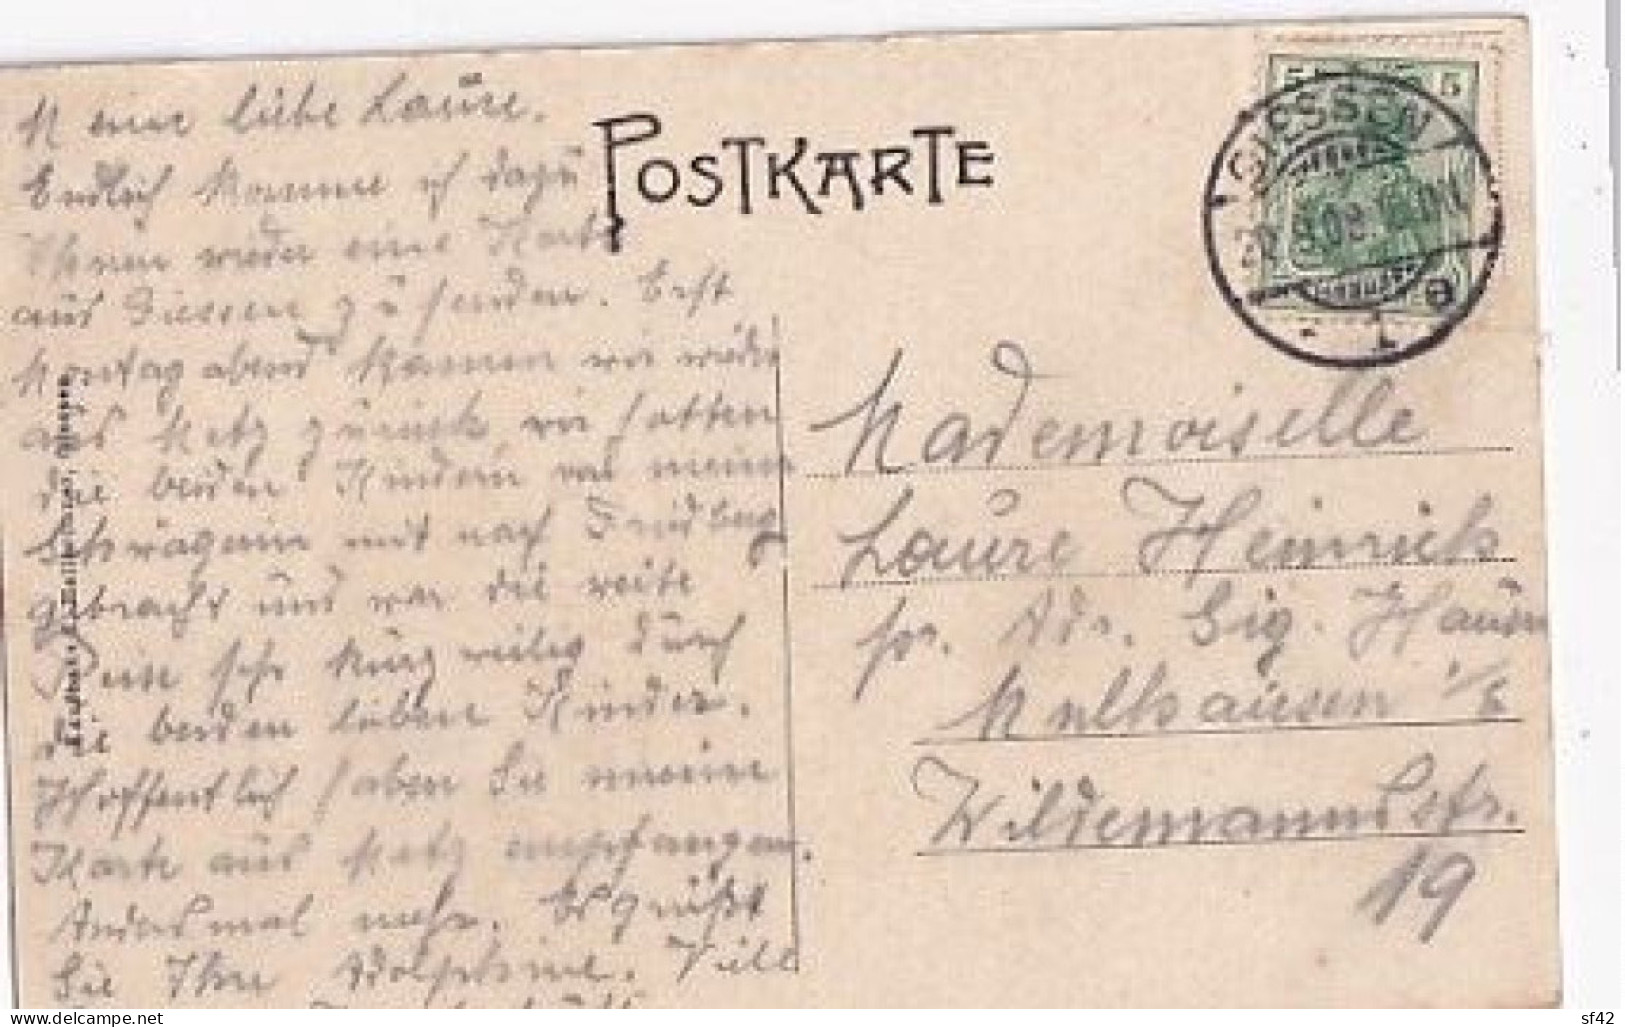 Meine liebe Laure.
Endlich komme ich dazu
Ihnen wieder eine Karte
aus Giessen zu senden. Erst
Montag abend kamen wir wieder
aus Metz zurück, wir hatten
die beiden Kinder von meiner
Schwägerin mit nach Friedberg
gebracht und war die weite
Reise sehr kurzweilig durch
die beiden lieben Kinder.
Hoffentlich haben Sie meine
Karte aus Metz empfangen.
Andermal mehr. Es grüßt
Sie Ihre Adolphine. Viele
POSTKARTE
5 5
GIESSEN
1
Mademoiselle
Laure Heinrich
pr. Adr. Sig. Haus
Mülhausen i/E
Wildemannsstr.
19
www.delcampe.net
sf42